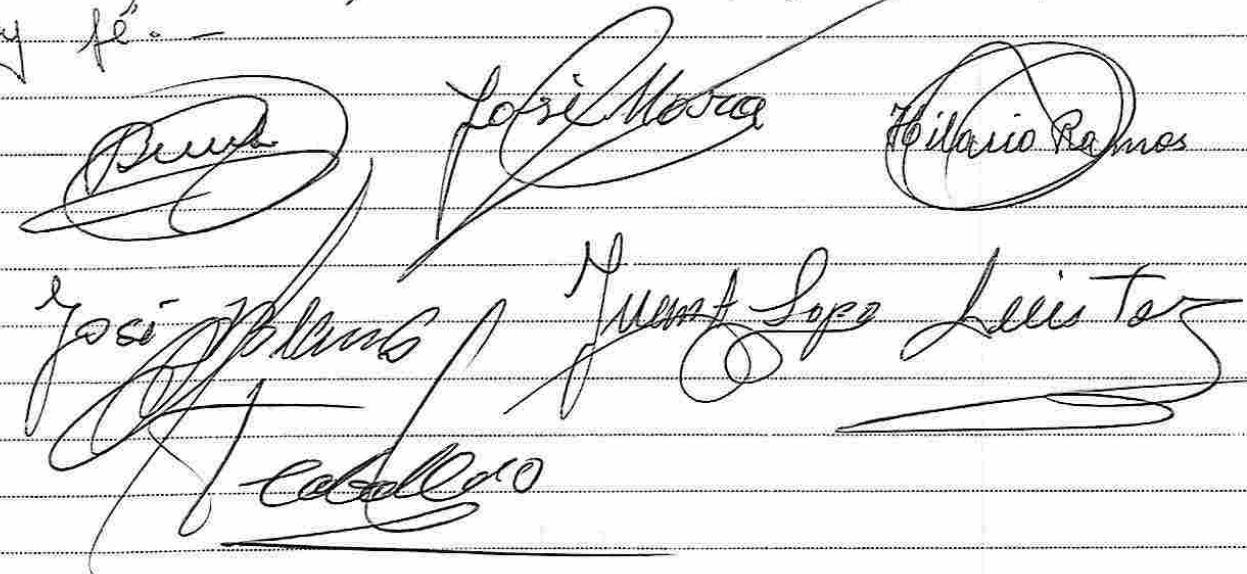 y fé.-
José Mora Hilario Ramos
José Blanco Juan Lopz Luis Tor
Caballero